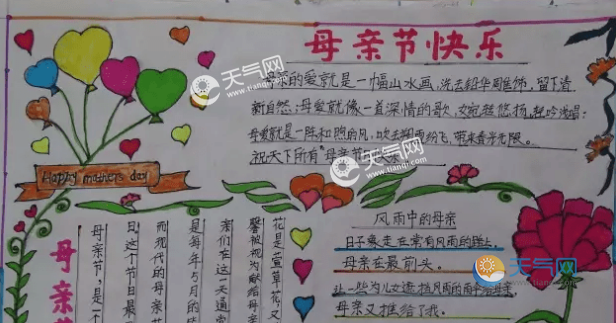 母亲节快乐
母亲的爱就是一幅山水画,洗去铅华雕饰,留下清
新自然;母爱就像一首深情的歌,婉转悠扬,轻吟浅唱;
母爱就是一阵和煦的风,吹去朔雪纷飞,带来春光无限。
祝天下所有母亲节
Happy mothers day
风雨中的母亲
日子最走在常有风雨的路上
母亲在最前头。
母亲又推给了我。
母亲节
花是萱草花,又
馨被视为献给母亲
我们在这一天通常
是每年5月的
而现代的母亲
日,这个节日最
母亲节,是一个
天气网
www.tianqi.com
天气网
www.tianqi.com
天气网